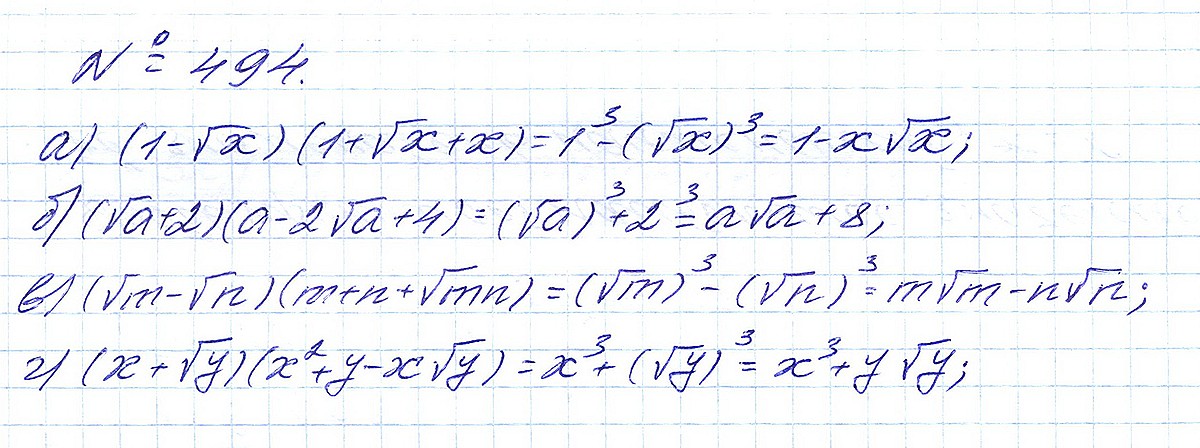 № 494.
а) (1-√x)(1+√x+x)=1³-(√x)³=1-x√x;
б) (√a+2)(a-2√a+4)=(√a)³+2³=a√a+8;
в) (√m-√n)(m+n+√mn)=(√m)³-(√n)³=m√m-n√n;
г) (x+√y)(x²+y-x√y)=x³+(√y)³=x³+y√y;